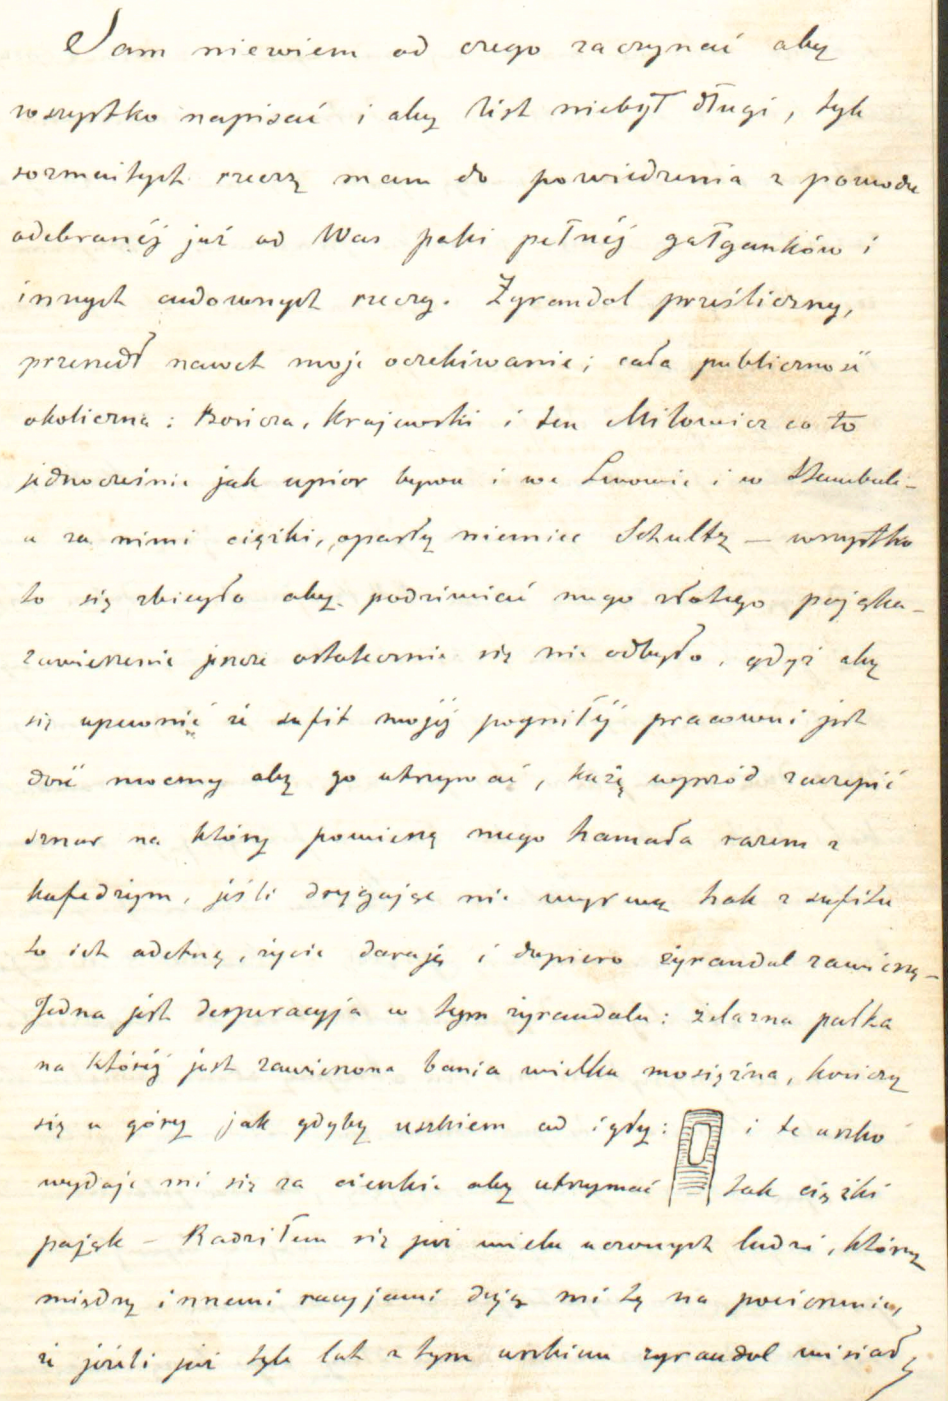 Sam niewiem od czego zaczynać aby
wszystko napisać i aby list niebył długi, tyle
rozmaitych rzeczy mam do powiedzenia z powodu
odebranéj już od Was paki pełnéj gałganków i
innych cudownych rzeczy. Żyrandol prześliczny,
przeszedł nawet moje oczekiwanie; cała publiczność
okoliczna: Krajewski i ten Miłowicz co to
jednocześnie jak upior bywa i we Lwowie i w Stambule –
a za nimi ciężki, opasły niemiec Schultz — wszystko
to się zbiegło aby podziwiać mego złotego pająka –
zawieszenie jeszcze ostatecznie się nie odbyło, gdyż aby
się upewnić że sufit mojéj pogniłéj pracowni jest
dość mocny aby go utrzymać, każę wprzód zaczepić
sznur na który powieszą mego hamała razem z
kafedżym, jeśli drygając nie wyrwą hak z sufitu
to ich odetną, życie darują i dopiero żyrandol zawieszą –
Jedna jest desperacyja w tym żyrandolu: żelazna pałka
na któréj jest zawieszona bania wielka mosiężna, kończy
się u góry jak gdyby uszkiem od igły: i te uszko
wydaje mi się za cienkie aby utrzymać tak ciężki
pająk – Radziłem się już wielu uczonych ludzi, którzy
między innemi racyjami dają mi tę na pocieszenie,
że jeżeli już tyle lat z tym uszkiem żyrandol wisiał,